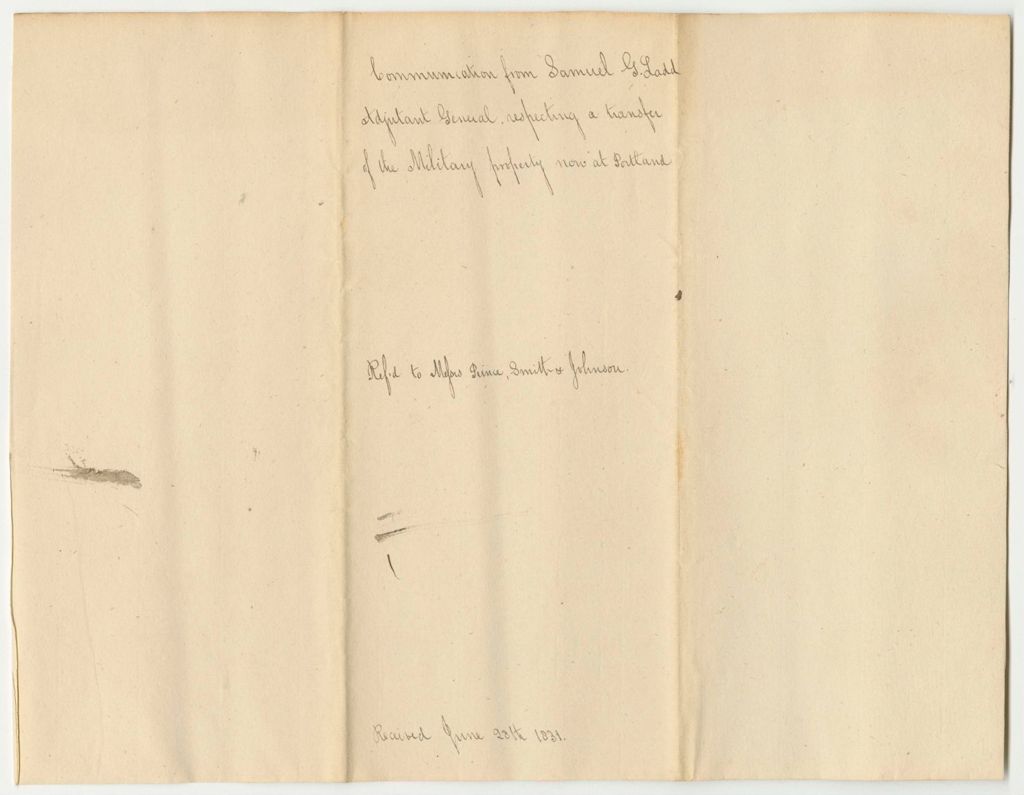 Communication from Samuel G. Ladd
Adjutant General, respecting a transfer
of the Military property now at Portland
Ref'd to Messrs Prince, Smith & Johnson.
Received June 28th 1831.